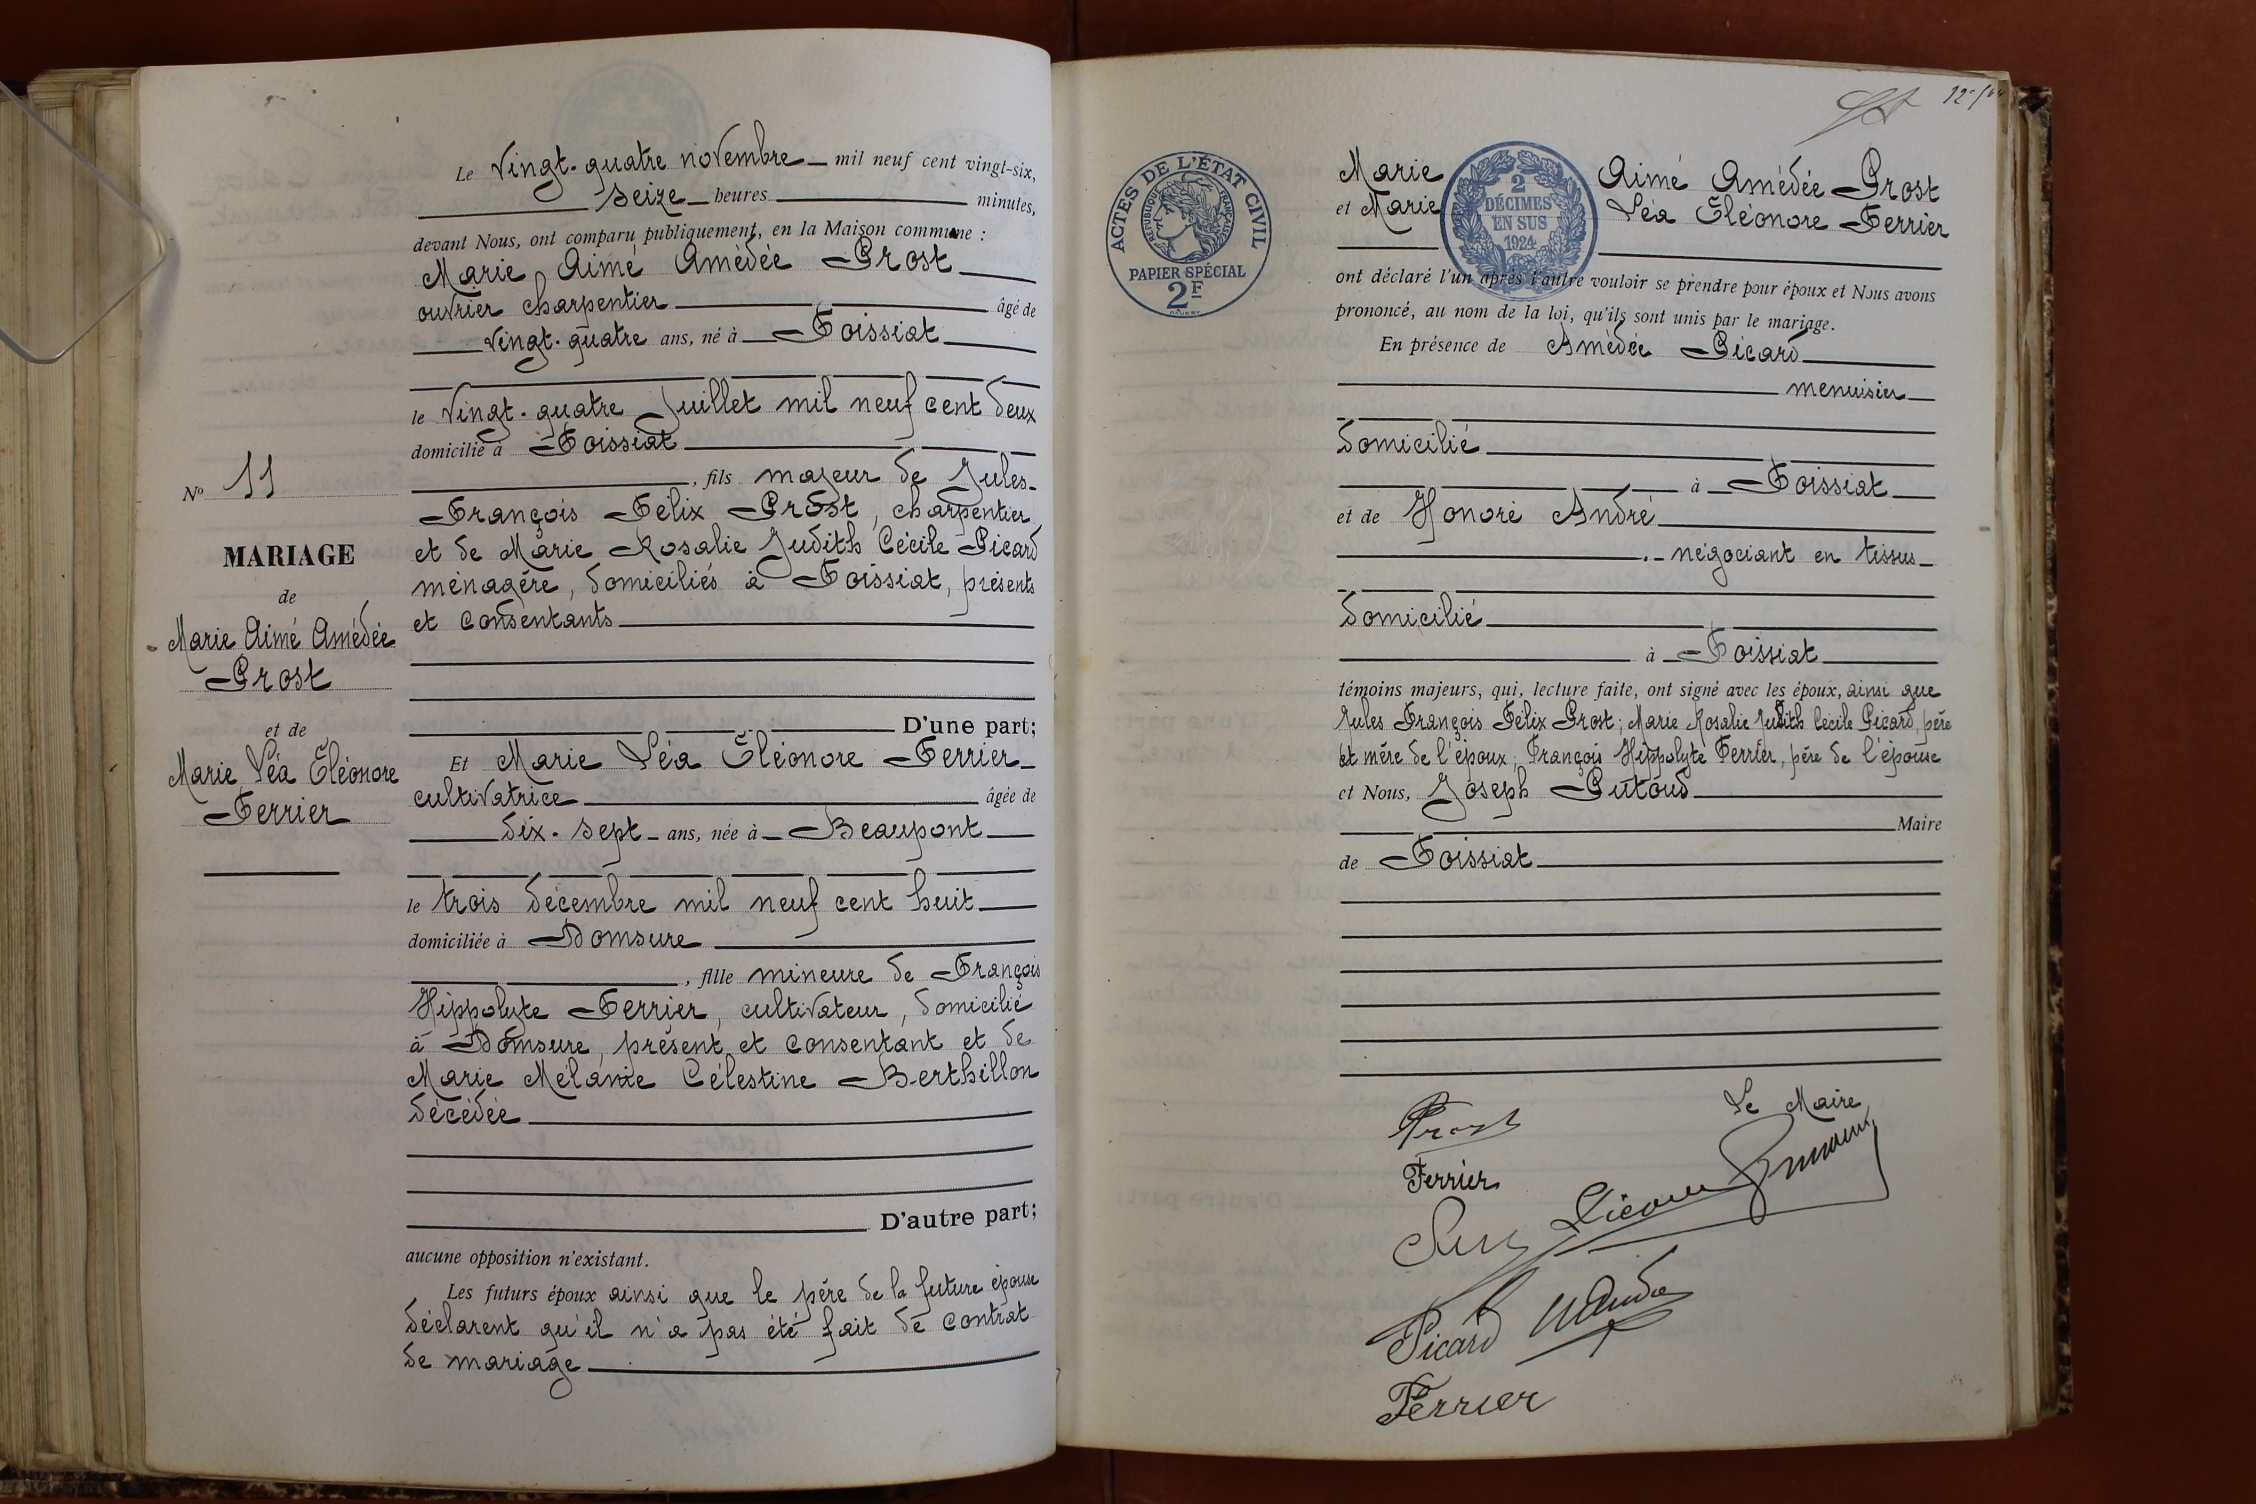 Le Vingt-quatre novembre mil neuf cent vingt-six,
seize heures minutes,
devant Nous, ont comparu publiquement, en la Maison commune :
Marie Aimé Amédée Prost
ouvrier charpentier âgé de
vingt-quatre ans, né à Foissiat
le vingt-quatre Juillet mil neuf cent deux
domicilié à Foissiat
, fils majeur de Jules
François Félix Prost, charpentier
et de Marie Rosalie Judith Cécile Picard
ménagère, domiciliés à Foissiat, présents
et consentants
D'une part;
Et Marie Léa Eléonore Ferrier
cultivatrice âgée de
dix-sept ans, née à Beaupont
le trois décembre mil neuf cent huit
domiciliée à Domsure
, fille mineure de François
Hippolyte Ferrier, cultivateur, domicilié
à Domsure, présent et consentant et de
Marie Mélanie Célestine Berthillon
décédée
D'autre part;
aucune opposition n'existant.
Les futurs époux ainsi que le père de la future épouse
déclarent qu'il n'a pas été fait de contrat
de mariage
No 11
MARIAGE
de
Marie Aimé Amédée
Prost
et de
Marie Léa Eléonore
Ferrier
ACTES DE L'ÉTAT CIVIL
RÉPUBLIQUE FRANÇAISE
PAPIER SPÉCIAL
2F
2
DÉCIMES
EN SUS
1924
Marie Aimé Amédée Prost
et Marie Léa Eléonore Ferrier
ont déclaré l'un après l'autre vouloir se prendre pour époux et Nous avons
prononcé, au nom de la loi, qu'ils sont unis par le mariage.
En présence de Amédée Picard
menuisier
domicilié
à Foissiat
et de Honoré André
négociant en tissus
domicilié
à Foissiat
témoins majeurs, qui, lecture faite, ont signé avec les époux, ainsi que
Jules François Félix Prost; Marie Rosalie Judith Cécile Picard, père
et mère de l'époux; François Hippolyte Ferrier, père de l'épouse
et Nous, Joseph Putoud
Maire
de Foissiat
Le Maire
Prost
Ferrier
Picard
Ferrier